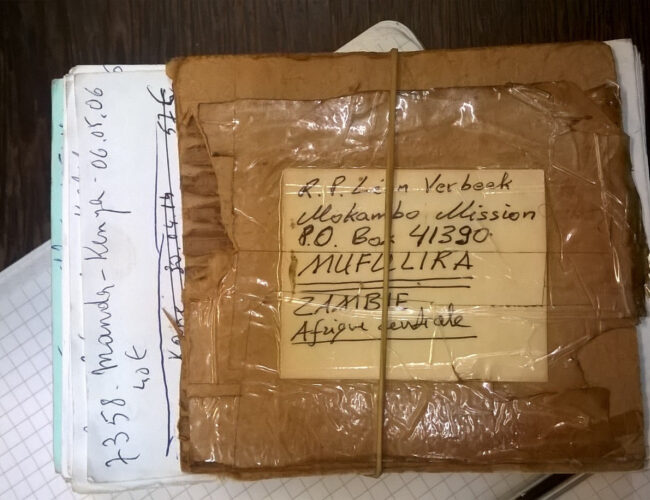 R.P. Léon Verbeek
Mokambo Mission
P.O. Box 41390
MUFULIRA
ZAMBIE
Afrique centrale
7358. Manda - Kenya - 06.05.06
40€
57€